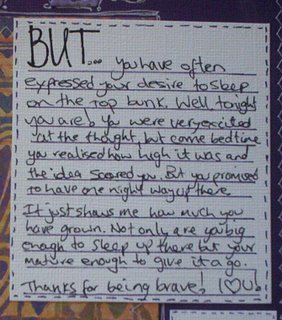 BUT... you have often
expressed your desire to sleep
on the top bunk. Well tonight
you are! You were very excited
at the thought, but come bedtime
you realised how high it was and
the idea scared you. But you promised
to have one night way up there.
It just shows me how much you
have grown. Not only are you big
enough to sleep up there but your
mature enough to give it a go.
Thanks for being brave! I ♡ U!